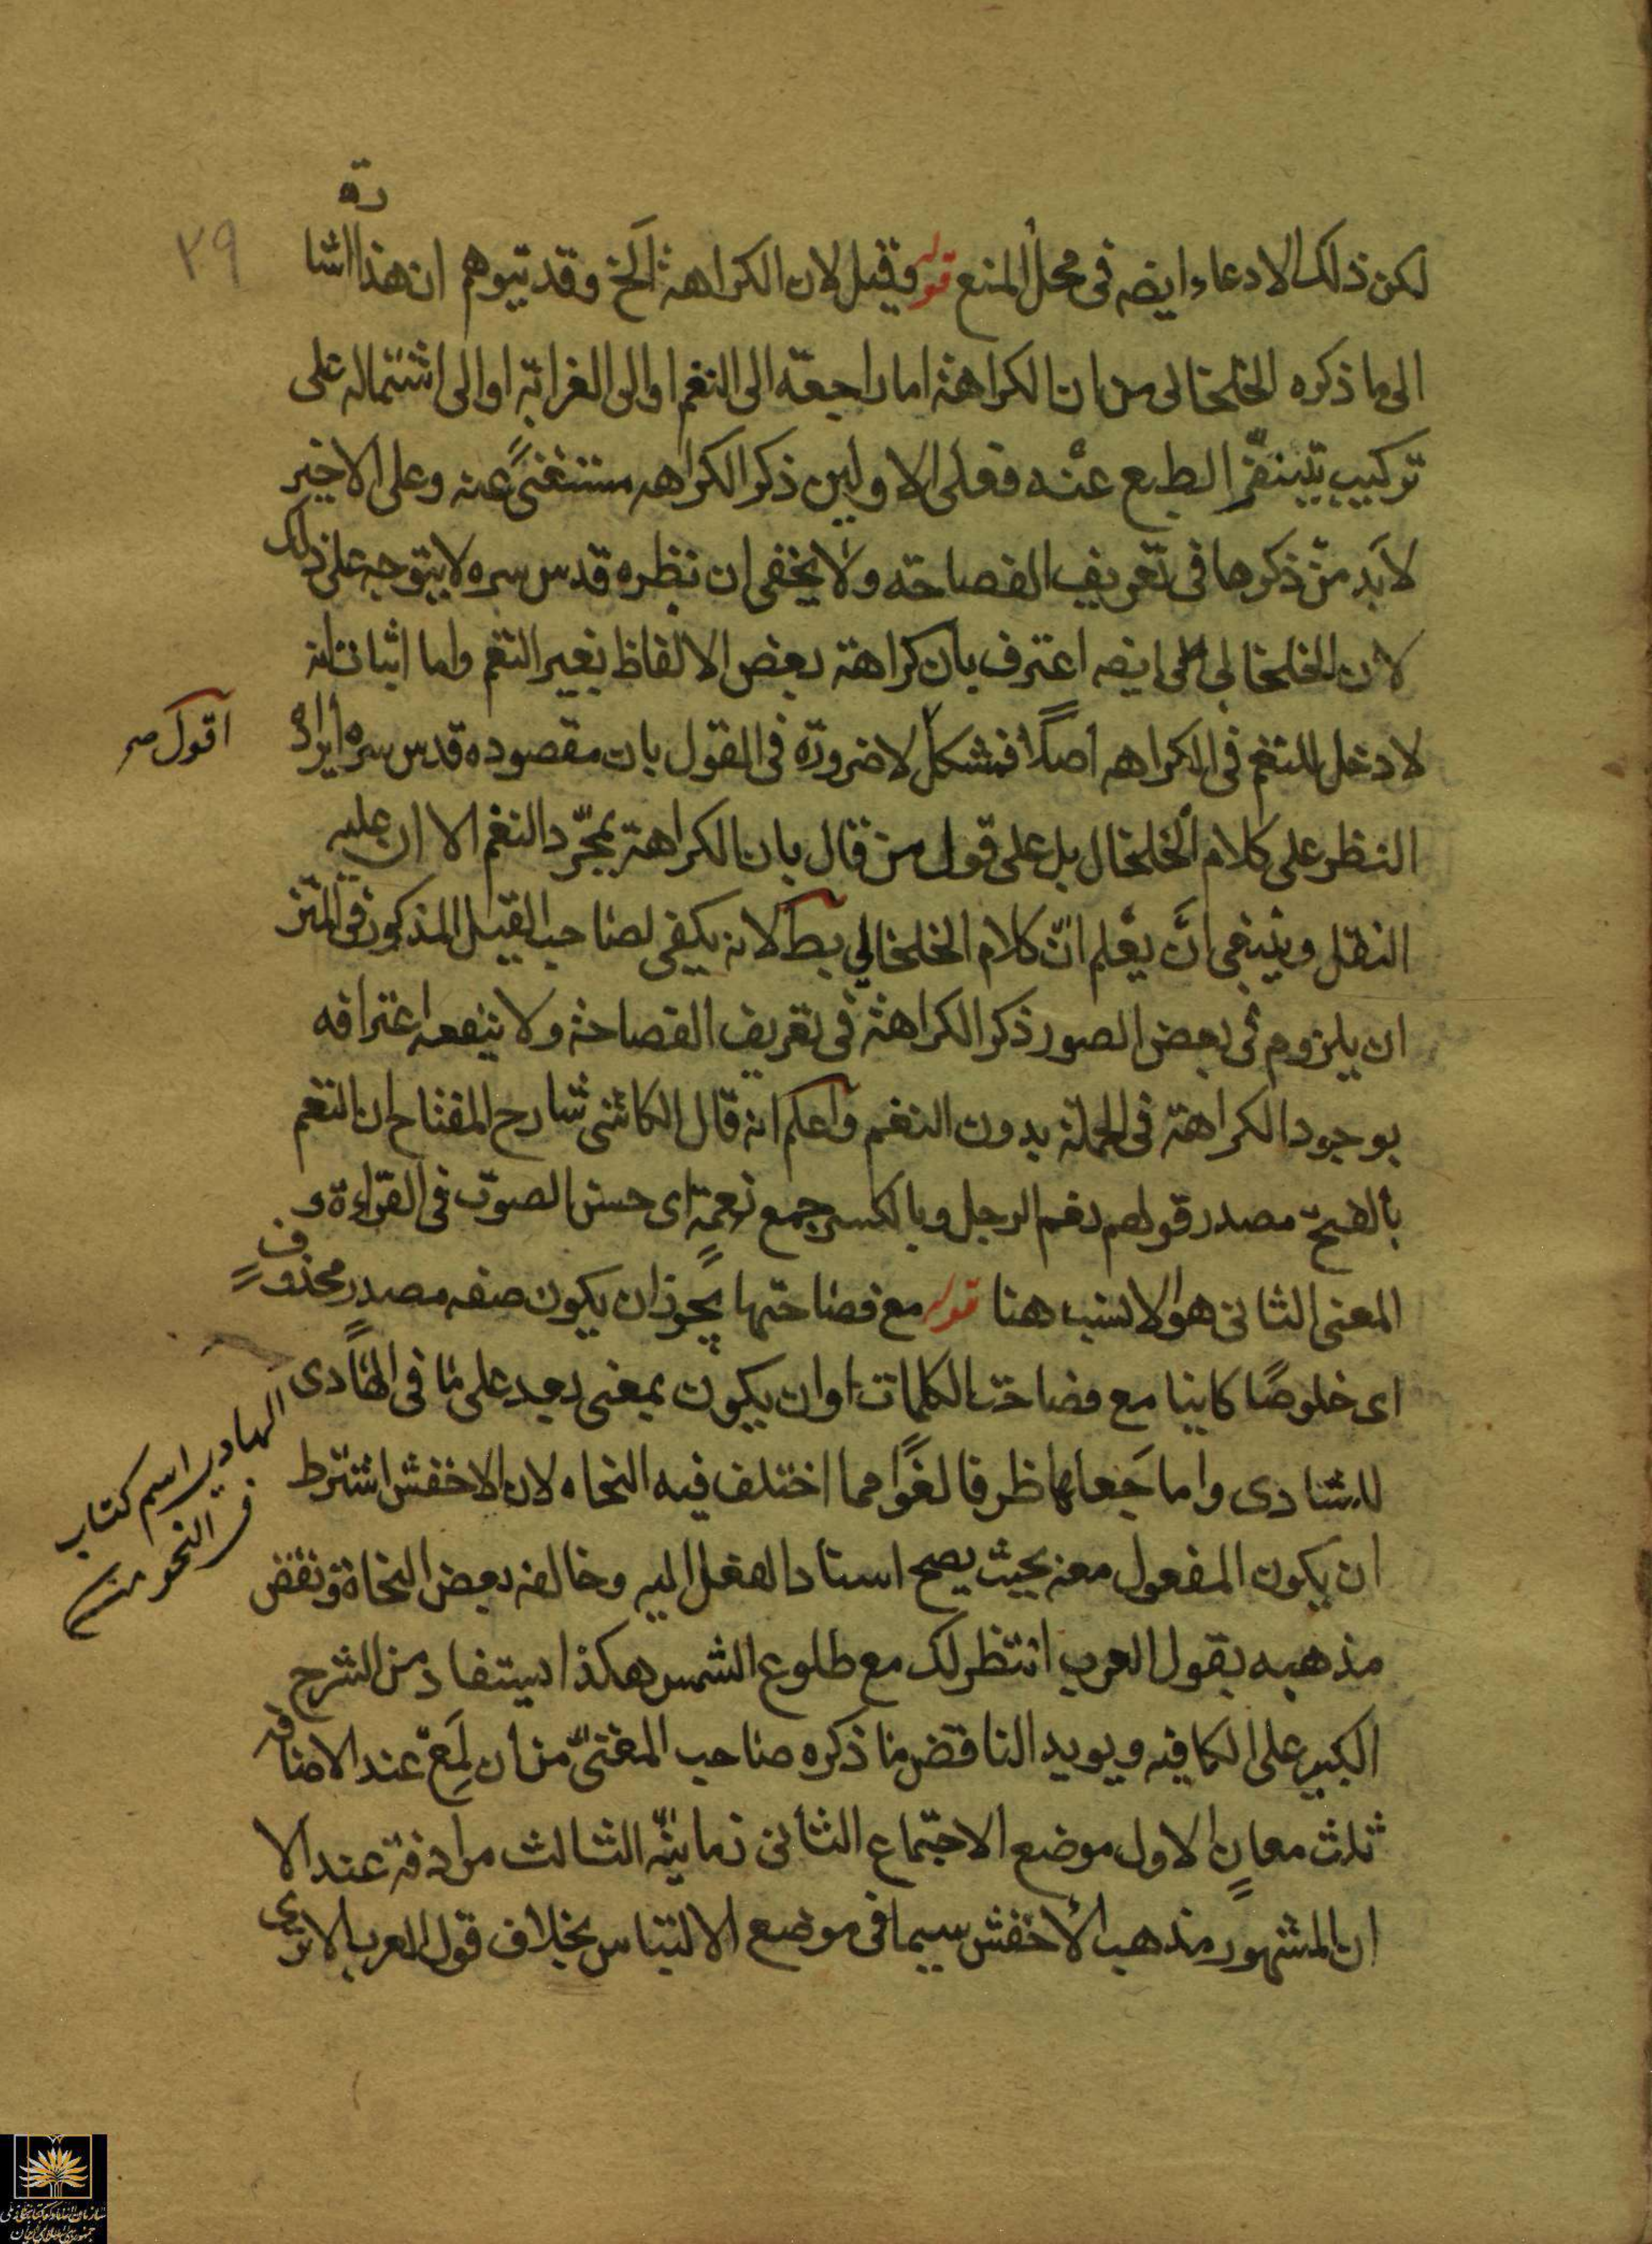 ۲۹
لكن ذلك الادعاء ايضه فى محل المنع قوله وقيل لان الكراهة الخ وقد يتوهم ان هذا اشارة
الى ما ذكره الخلخالى من ان الكراهة اما راجعة الى النغم او الى الغرابة او الى اشتماله على
تركيب يتنفر الطبع عنه فعلى الاولين ذكر الكراهه مستغنىً عنه وعلى الاخير
لابد من ذكرها فى تعريف الفصاحة ولا يخفى ان نظره قدس سره لا يتوجه على ذلك
لان الخلخالي ايضه اعترف بان كراهة بعض الالفاظ بغير النغم واما اثبات انه
لا دخل للنغم فى الكراهه اصلاً فمشكل لا ضرورة فى القول بان مقصوده قدس سره ايراد
اقول صح
النظر على كلام الخلخال بل على قول من قال بان الكراهة بمجرّد النغم الا ان عليه
النقل وينبغي انَّ يعلم انّ كلام الخلخالي بط لانه يكفى لصاحب القيل المذكور فى المتن
ان يلزوم فى بعض الصور ذكر الكراهة فى تعريف الفصاحة ولا ينفعه اعترافه
بوجود الكراهة فى الجملة بدون النغم واعلم انه قال الكاشى شارح المفتاح ان النغم
بالفتح مصدر قولهم نغم الرجل وبالكسر جمع نغمة اى حسن الصوت فى القراءة و
المعنى الثانى هو الانسب هنا قوله مع فصاحتها يجوز ان يكون صفه مصدر محذوف
اى خلوصًا كاينا مع فصاحة الكلمات او ان يكون بمعنى بعد على ما فى الهادى
الهادي اسم كتاب
فى النحو منه
للشادى واما جعلها ظرفا لغوًا مما اختلف فيه النحاه لان الاخفش اشترط
ان يكون المفعول معه بحيث يصح اسناد الفعل اليه وخالفه بعض النحاة ونقض
مذهبه بقول العرب انتظرلك مع طلوع الشمس هكذا يستفاد من الشرح
الكبير على الكافيه ويويد الناقض ما ذكره صاحب المغنى من ان لِمَعَ عند الاضافه
ثلث معانٍ الاول موضع الاجتماع الثانى زمانيته الثالث مرادفة عند الا
ان المشهور مذهب الأخفش سيما فى موضع الالتباس بخلاف قول العرب الا ترى